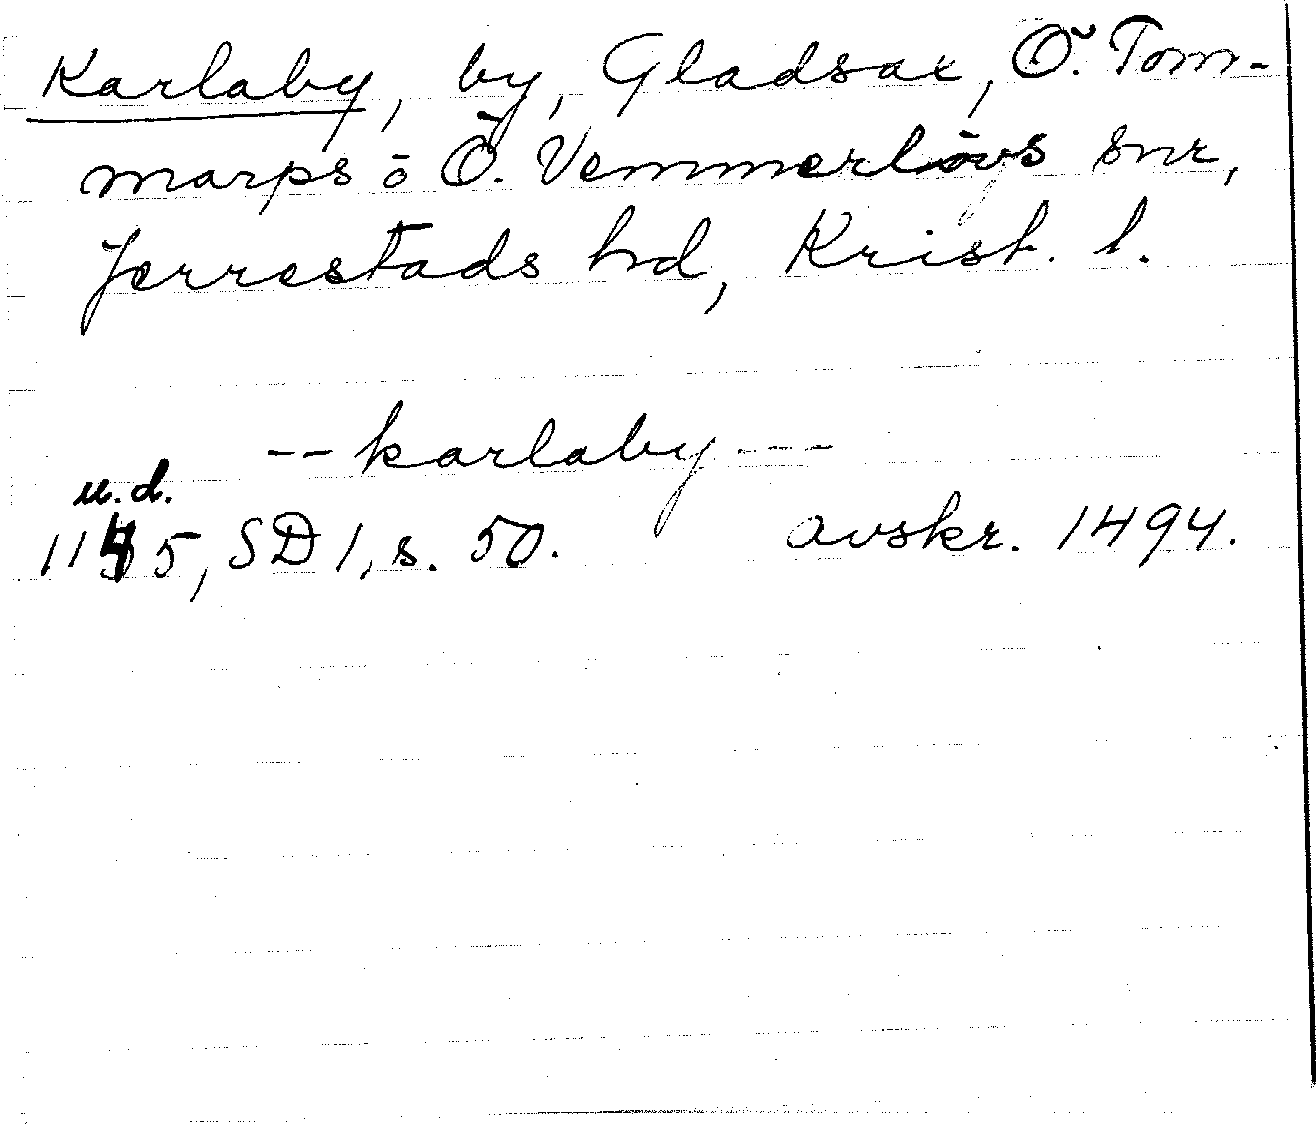 Karlaby, by, Gladsax, Ö. Tom-
marps o Ö. Vemmerlövs snr,
Jerrestads hd, Krist. l.
-- karlaby ---
u.d.
1145, SD 1, s. 50. avskr. 1494.